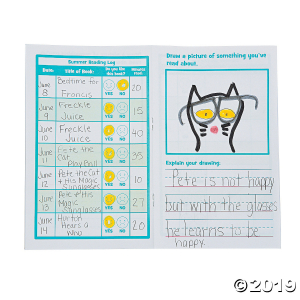 Summer Reading Log
Date: Title of Book: Do you like this book? Minutes Read:
June 8 Bedtime for Francis YES NO 20
June 9 Freckle Juice YES NO 15
June 10 Freckle Juice YES NO 40
June 11 Pete the Cat Play Ball YES NO 35
June 12 Pete the Cat + His Magic Sunglasses YES NO 10
June 13 Pete + His Magic Sunglasses YES NO 27
June 14 Horton Hears a Who YES NO 20
Draw a picture of something you've
read about.
Explain your drawing:
Pete is not happy
but with the glasses
he learns to be
happy.
©2019